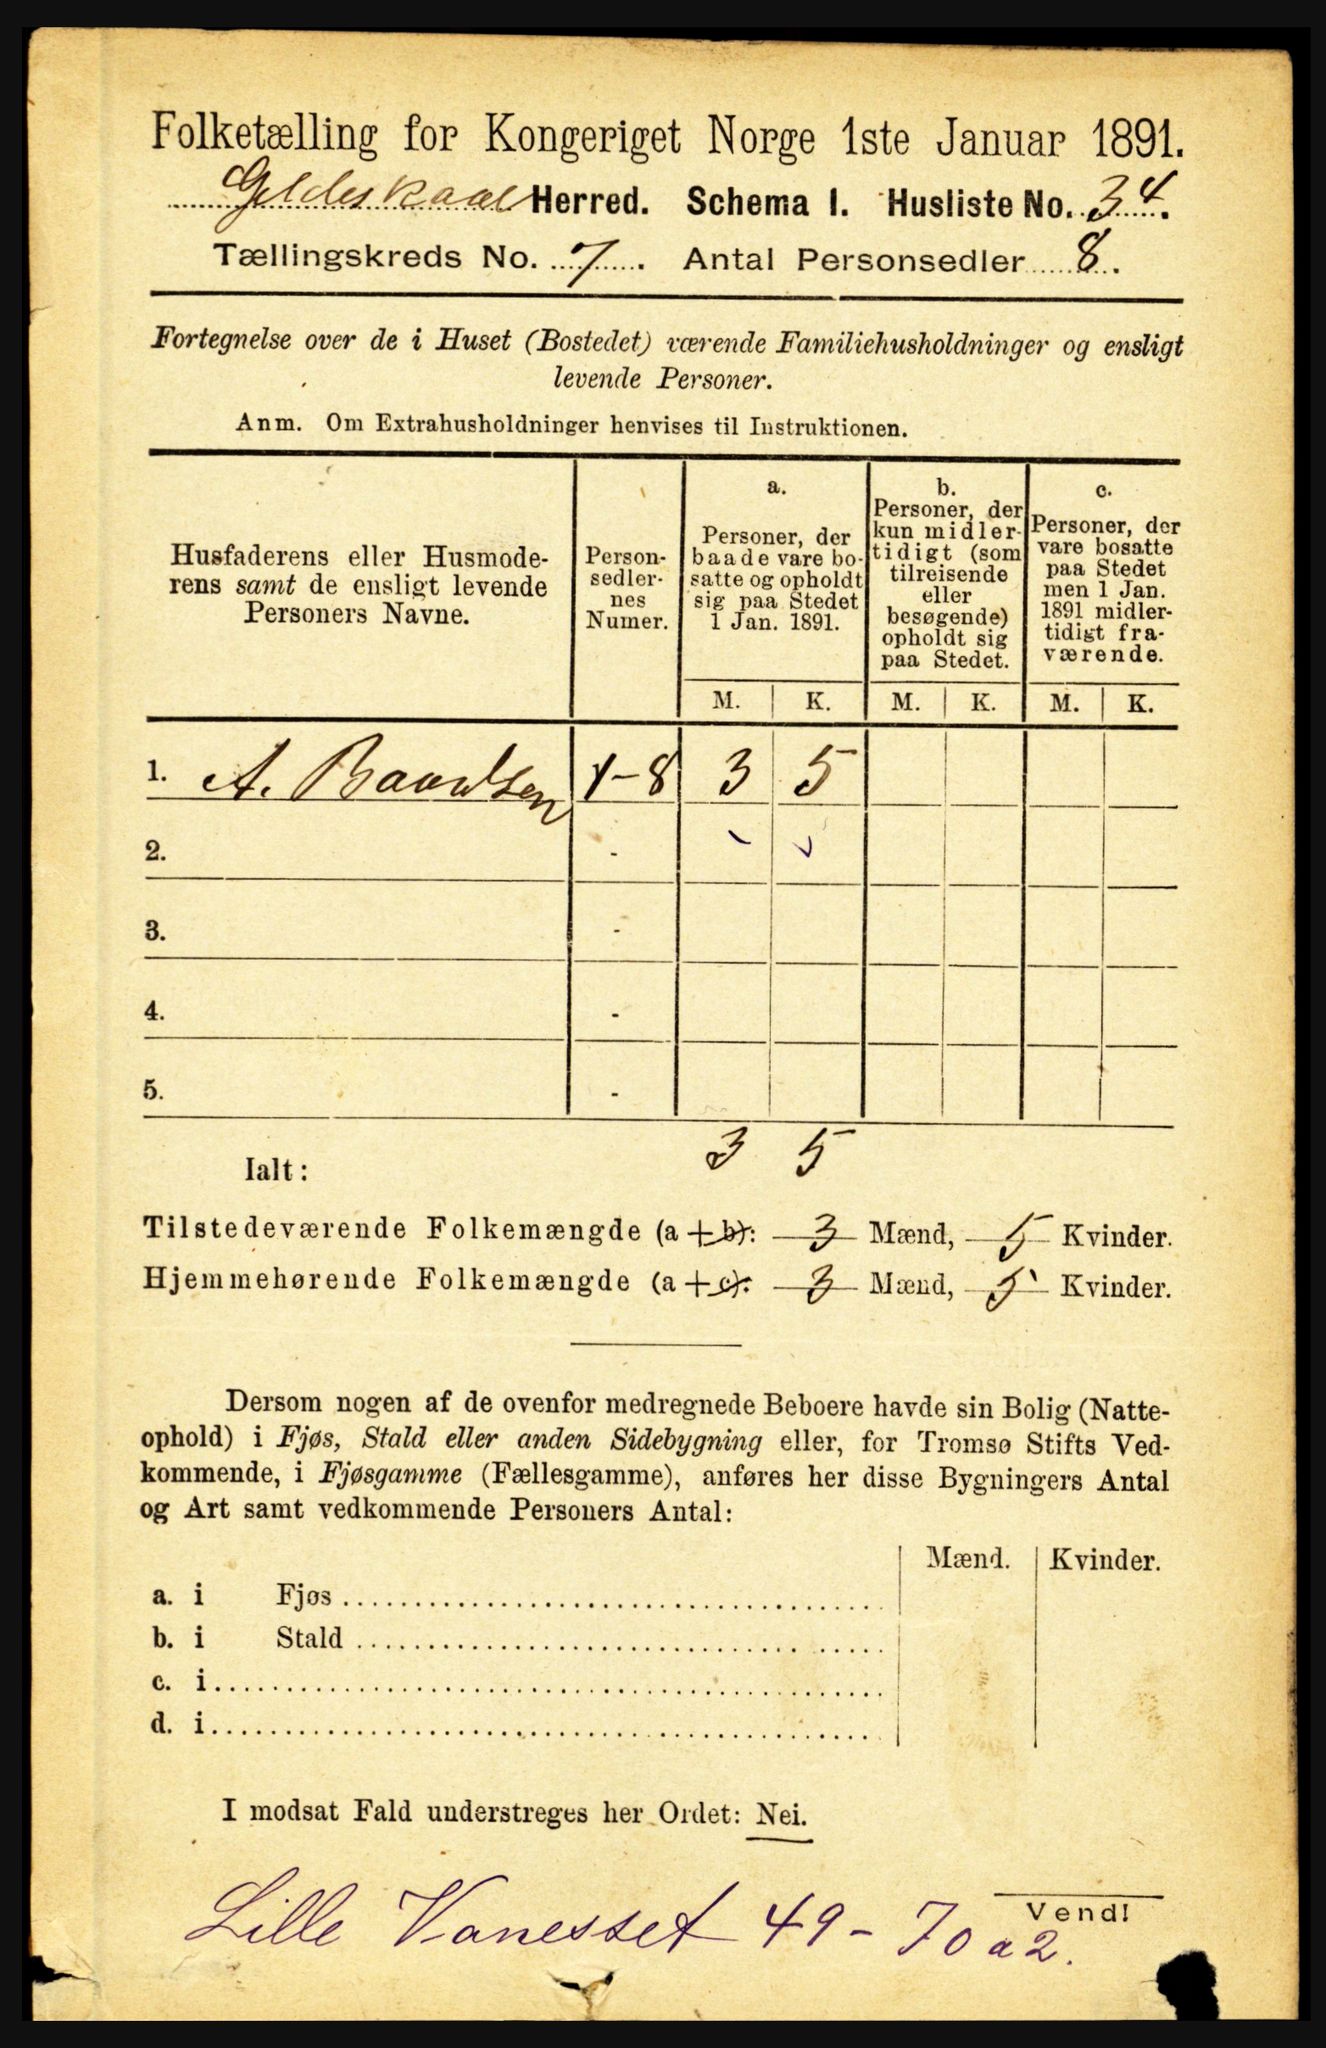 Folketælling for Kongeriget Norge 1ste Januar 1891.
Gildeskaal Herred. Schema I. Husliste No. 34.
Tællingskreds No. 7. Antal Personsedler 8.
Fortegnelse over de i Huset (Bostedet) værende Familiehusholdninger og ensligt
levende Personer.
Anm. Om Extrahusholdninger henvises til Instruktionen.
Husfaderens eller Husmode-
rens samt de ensligt levende
Personers Navne.
Person-
sedler-
nes
Numer.
a.
Personer, der
baade vare bo-
satte og opholdt
sig paa Stedet
1 Jan. 1891.
b.
Personer, der
kun midler-
tidigt (som
tilreisende
eller
besøgende)
opholdt sig
paa Stedet.
c.
Personer, der
vare bosatte
paa Stedet
men 1 Jan.
1891 midler-
tidigt fra-
værende.
M. K. M. K. M. K.
1. A. Baardsen 1-8 3 5
2. -
3. -
4. -
5. -
3 5
Ialt:
Tilstedeværende Folkemængde (a+b): 3 Mænd, 5 Kvinder.
Hjemmehørende Folkemængde (a+c): 3 Mænd, 5 Kvinder.
Dersom nogen af de ovenfor medregnede Beboere havde sin Bolig (Natte-
ophold) i Fjøs, Stald eller anden Sidebygning eller, for Tromsø Stifts Ved-
kommende, i Fjøsgamme (Fællesgamme), anføres her disse Bygningers Antal
og Art samt vedkommende Personers Antal:
Mænd. Kvinder.
a. i Fjøs
b. i Stald
c. i
d. i
I modsat Fald understreges her Ordet: Nei.
Vend!
Lille Vanesset 49-70a2.